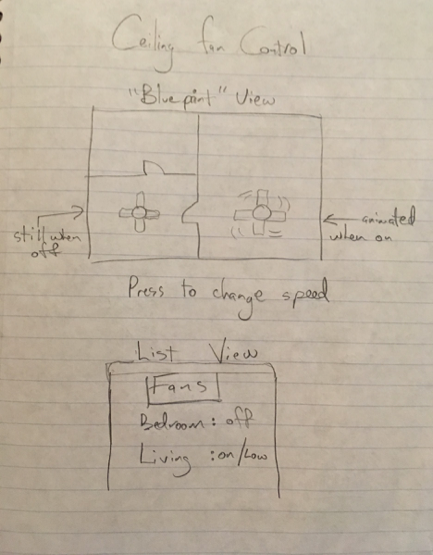 Ceiling fan Control
"Blueprint" View
still when
off
animated
when on
Press to change speed
List View
Fans
Bedroom: off
Living: on/Low